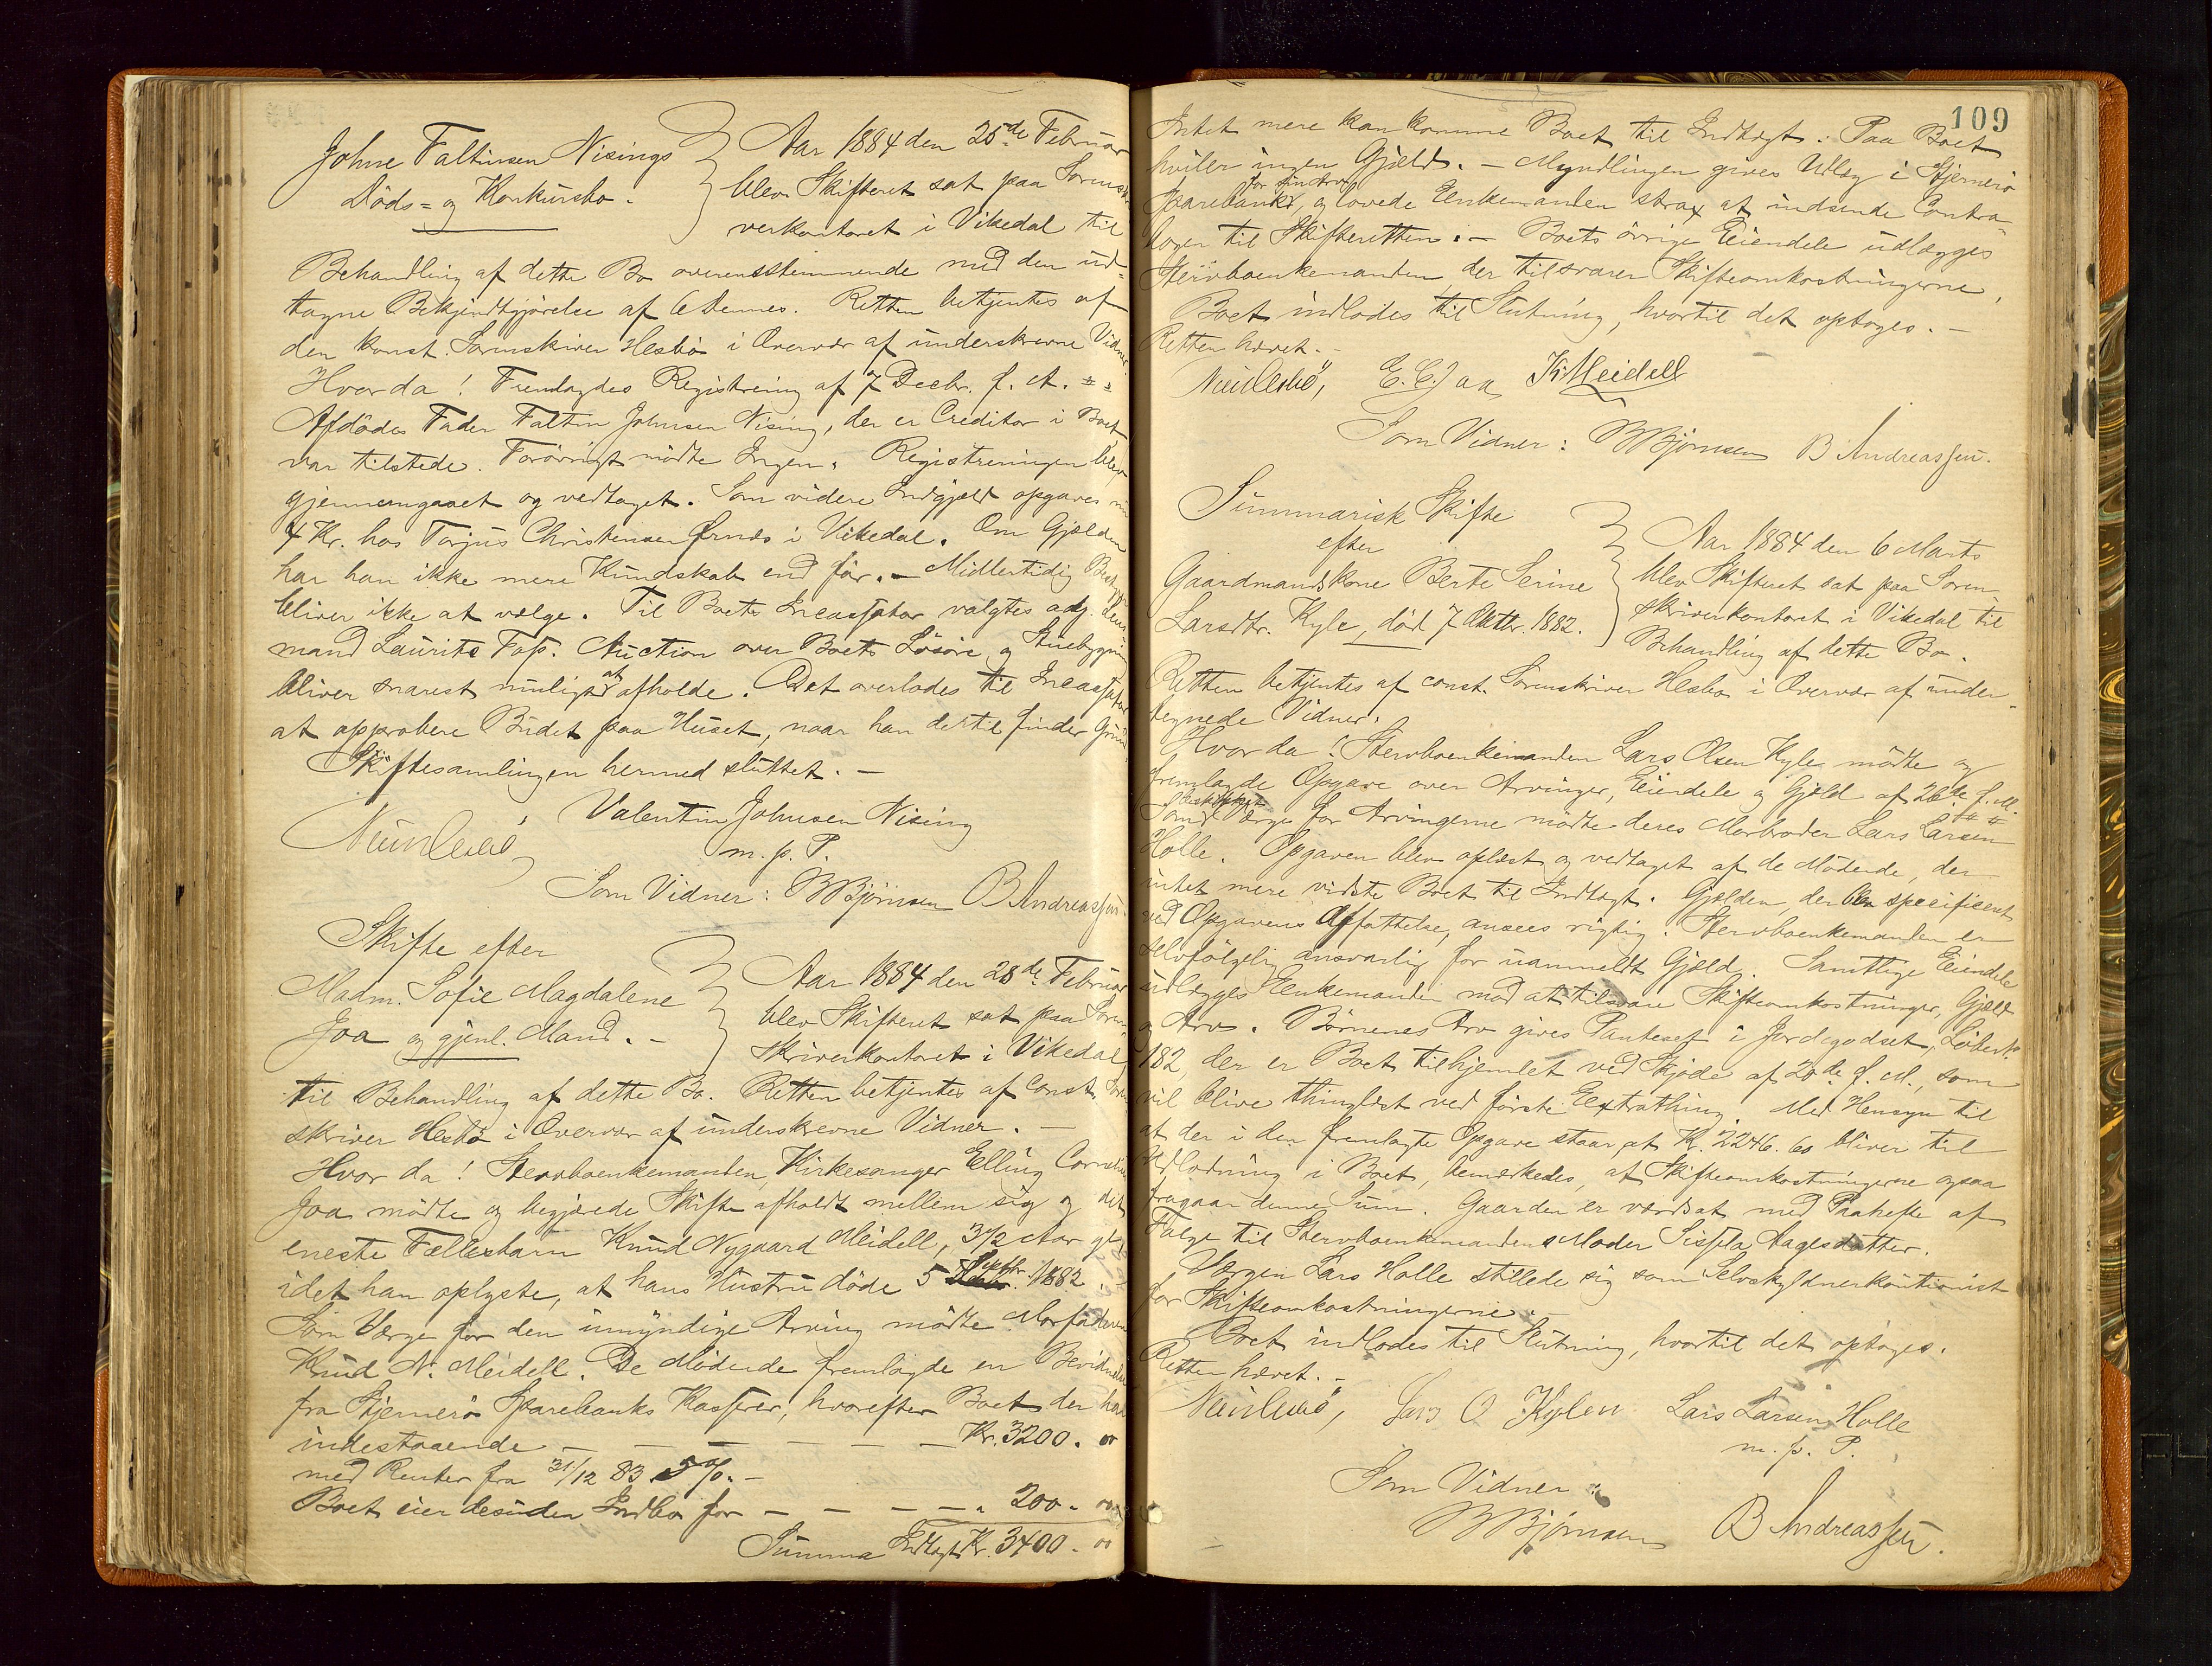 Johne Faltinsen Nisings
Döds= og Konkursbo.
Aar 1884 den 25de Februar
blev Skifteret sat paa Sorensk
verkontoret i Vikedal til
Behandling af dette Bo overensstemmende med den ud-
tagne Bekjendtgjörelse af 6 dennes. Retten betjentes af
den konst. Sorenskriver Hesbö i Overvær af underskrevne Vidner
Hvor da! Fremlagdes Registrering af 7 Decbr. f. A.
Afdödes Fader Faltin Johnsen Nising, der er Creditor i Boet
var tilstede. Forövrigt mödte Ingen. Registreringen blev
gjennemgaaet og vedtaget. Som videre Indgjæld opgaves
4 Kr. hos Torjus Christensen Ørnæs i Vikedal. Om Gjælden
har han ikke mere Kundskab end för. – Midlertidig
bliver ikke at vælge. Til Boets Incassator valgtes adj. Lens
mand Laurits Fop. Auction over Boets Lösöre og Stuebygning
bliver snarest muligst at afholde. Det overlodes til Incassator
at approbere Budet paa Huset, naar han dertil finder Grund
Skiftesamlingen hermed sluttet. –
Valentin Johnsen Nising
m. p. P.
Som Vidner: B Bjørnsen B Andreassen.
Skifte efter
Madm. Sofie Magdalene
Joa og gjenl. Mand. –
Aar 1884 den 28de Februar
blev Skifteret sat paa Soren
skriverkontoret i Vikedal
til Behandling af dette Bo. Retten betjentes af Const. Soren
skriver Hesbö i Overvær af underskrevne Vidner. –
Hvor da! Stervboenkemanden, Kirkesanger Elling Cornelius
Joa mödte og begjærede Skifte afholdt mellem sig og det
eneste Fællesbarn Knud Nygaard Meidell, 3 1/2 Aar gl.
idet han oplyste, at hans Hustru döde 5 Septbr. 1882.
Som Værge for den umyndige Arving mödte Morfaderen
Knud N. Meidell. De Mödende fremlagde en Bevidnelse
fra Stjernerö Sparebanks Kasserer, hvorefter Boet der har
indestaaende – – – – – – Kr. 3200. 00
med Renter fra 31/12 83. 5%. –
Boet eier desuden Indbo for – – – – " 200. 00
Summa Indtægt Kr. 3400. 00
109
Intet mere kan komme Boet til Indtægt. Paa Boet
hviler ingen Gjæld. – Myndlingen gives Udlæg i Stjernerö
Sparebank for sin Arv, og lovede Enkemanden strax at indsende Contra-
bogen til Skifteretten. – Boets övrige Eiendele udlægges
Stervboenkemanden, der tilsvarer Skifteomkostningerne.
Boet indlodes til Slutning, hvortil det optoges. –
Retten hævet. –
E. C. Joa K Meidell
Som Vidner: B Bjørnsen B Andreassen.
Summarisk Skifte
efter
Gaardmandskone Berte Serine
Larsdtr. Kyle, död 7 Oktbr. 1882.
Aar 1884 den 6 Marts
blev Skifteret sat paa Soren-
skriverkontoret i Vikedal til
Behandling af dette Bo.
Retten betjentes af const. Sorenskriver Hesbö i Overvær af under-
tegnede Vidner.
Hvor da! Stervboenkemanden Lars Olsen Kyle mödte og
fremlagde Opgave over Arvinger, Eiendele og Gjæld af 26de f. M.
Som beskikket Værge for Arvingerne mödte deres Morbroder Lars Larsen
Holle. Opgaven blev oplæst og vedtaget af de Mödende, der
intet mere vidste Boet til Indtægt. Gjælden, der blev specificert
ved Opgavens Affattelse, ansees rigtig. Stervboenkemanden er
selvfölgelig ansvarlig for uanmeldt Gjæld. Samtlige Eiendele
udlægges Enkemanden mod at tilsvare Skifteomkostninger, Gjæld
og Arv. Börnenes Arv gives Panteret i Jordegodset, Löbenr.
182, der er Boet tilhjemlet ved Skjöde af 20de f. M., som
vil blive thinglæst ved förste Extrathing. Med Hensyn til
at der i den fremlagte Opgave staar, at Kr. 2246. 60 bliver til
Udlodning i Boet, bemærkedes, at Skifteomkostningerne ogsaa
fragaar denne Sum. Gaarden er værdsat med Paahefte af
Følge til Stervboenkemandens Moder Sissela Aagesdatter.
Værgen Lars Holle stillede sig som Selvskyldnerkautionist
for Skifteomkostningerne. –
Boet indlodes til Slutning, hvortil det optoges.
Retten hævet. –
Lars O Kylen Lars Larsen Holle
m. p. P.
Som Vidner:
B Bjørnsen B Andreassen.